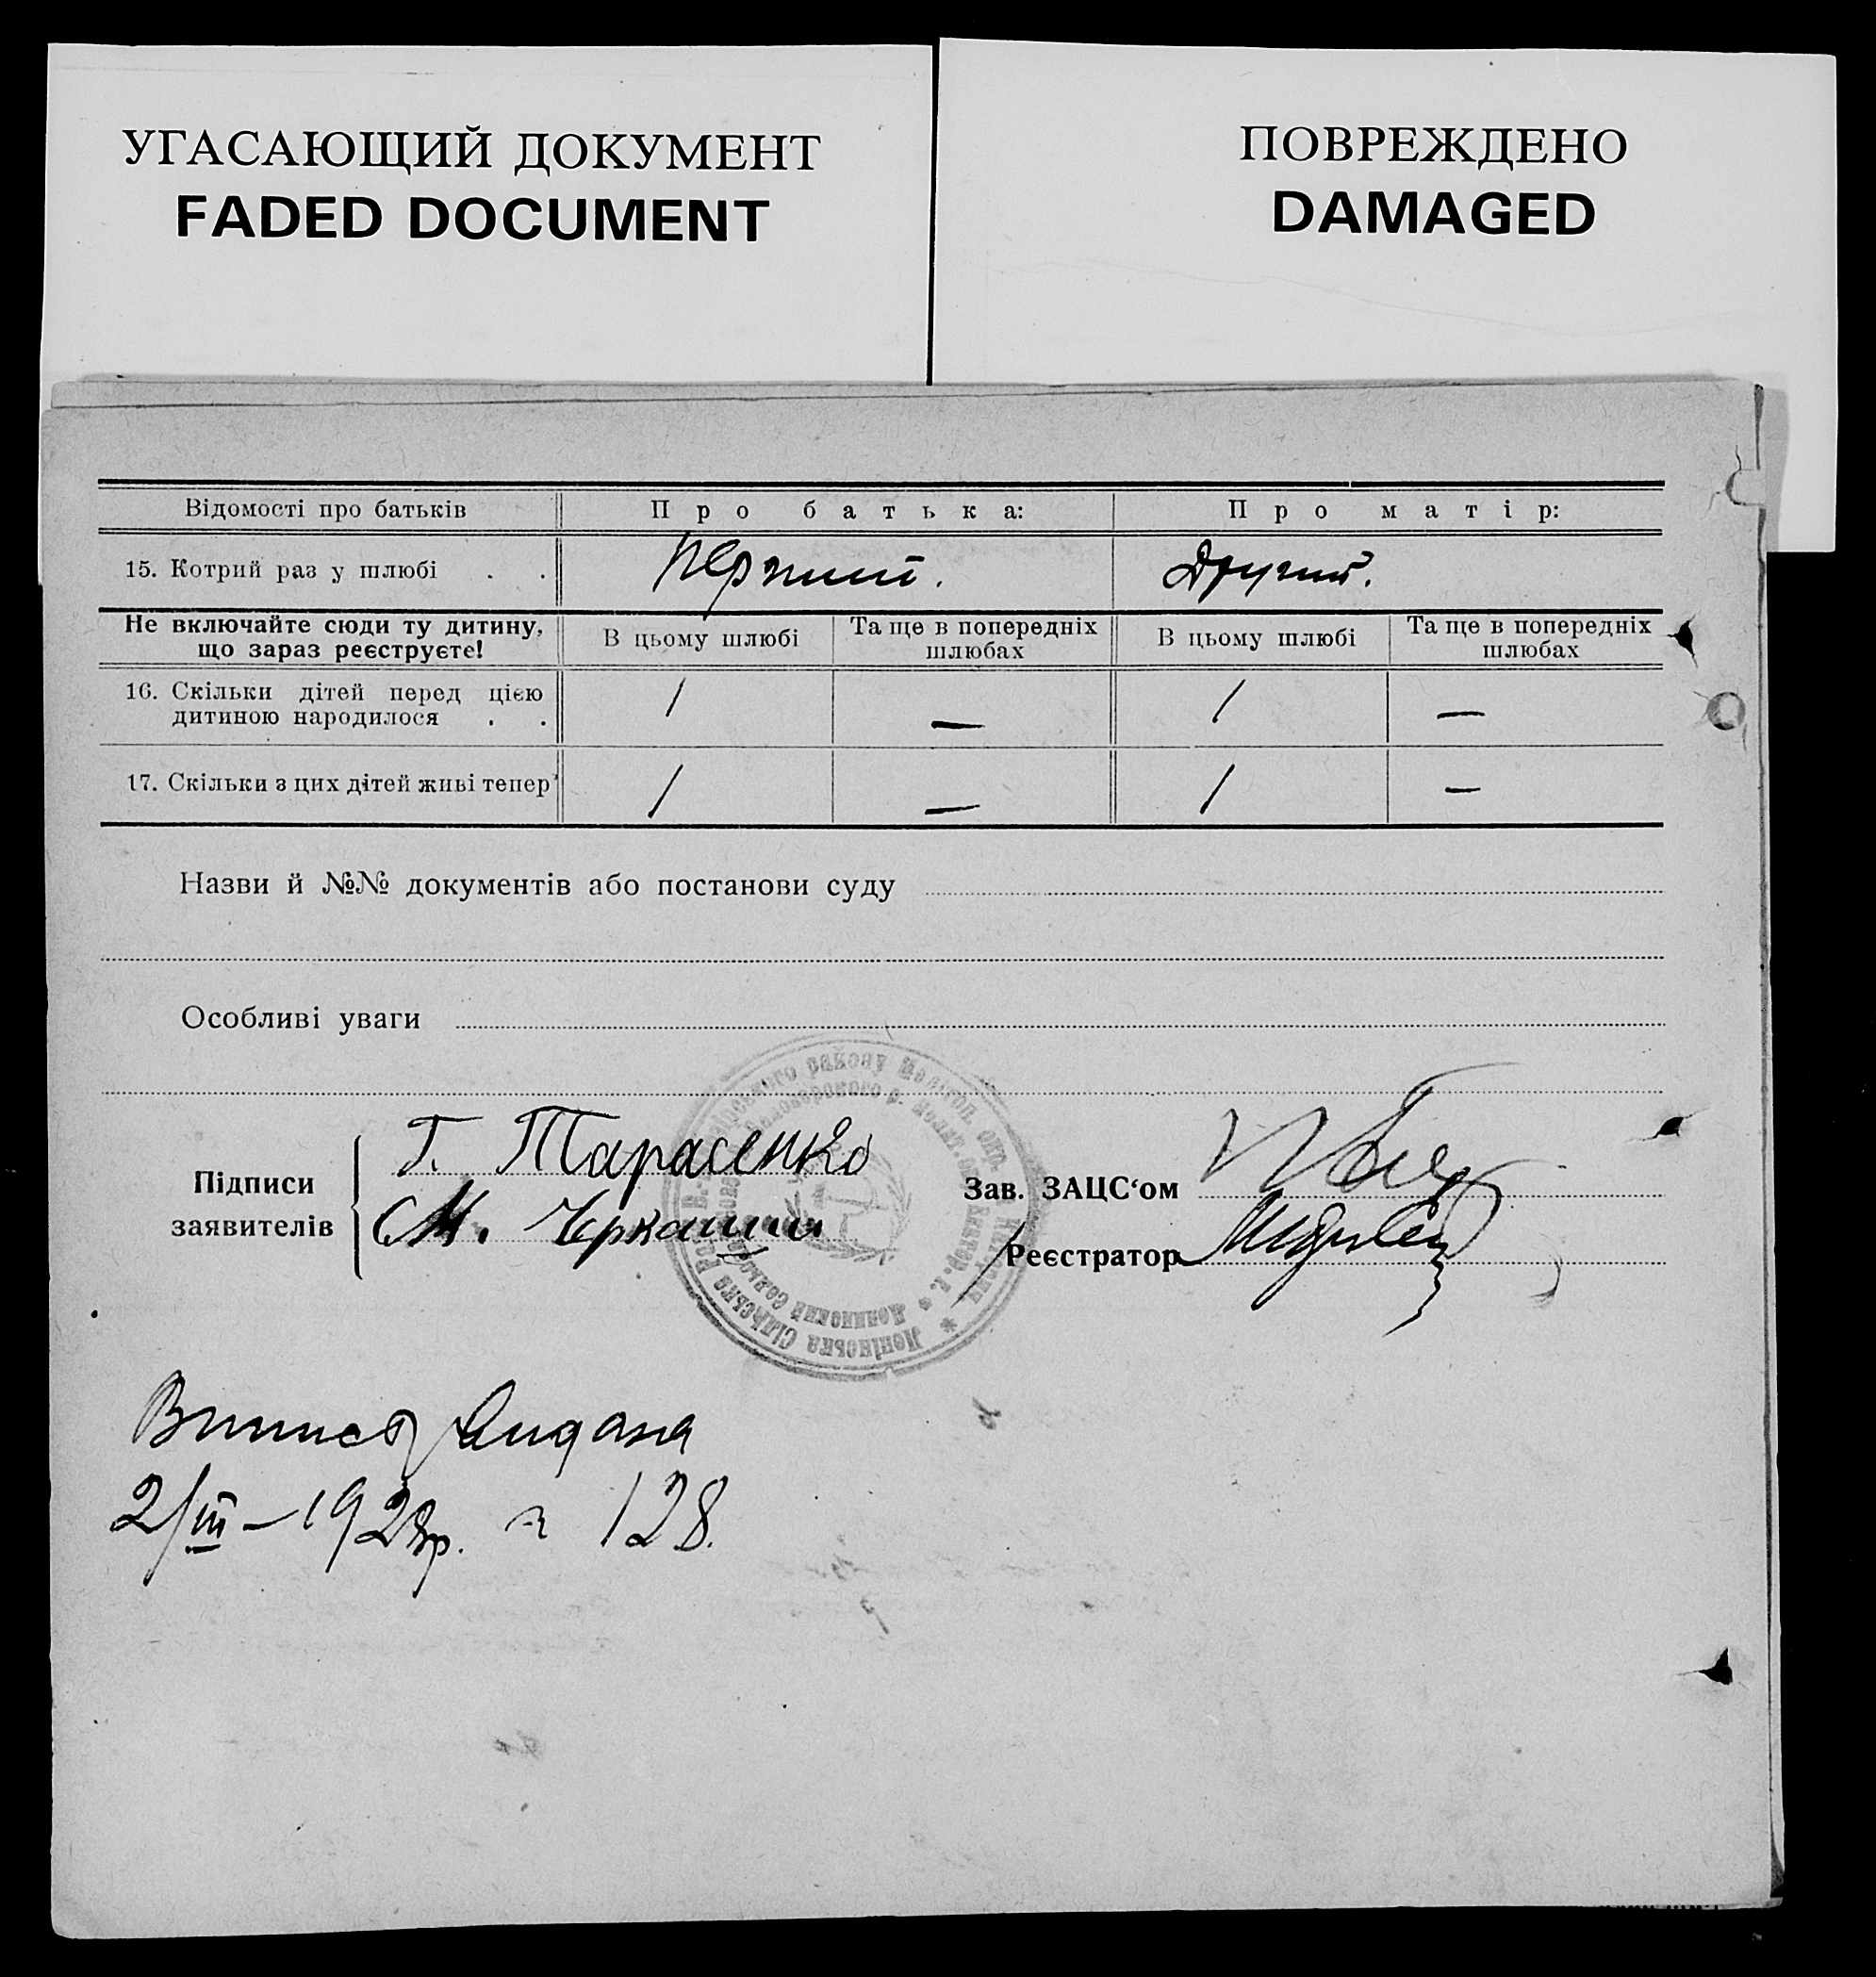 УГАСАЮЩИЙ ДОКУМЕНТ
FADED DOCUMENT
ПОВРЕЖДЕНО
DAMAGED
Відомості про батьків Про батька: Про матір:
15. Котрий раз у шлюбі . . Перший. Другий.
Не включайте сюди ту дитину, що зараз реєструєте! В цьому шлюбі Та ще в попередніх шлюбах В цьому шлюбі Та ще в попередніх шлюбах
16. Скільки дітей перед цією дитиною народилося . . 1 — 1 —
17. Скільки з цих дітей живі тепер 1 — 1 —
Назви й №№ документів або постанови суду
Особливі уваги
Підписи заявителів
Г. Тарасенко
М. Черкашин
Зав. ЗАЦС‘ом
Реєстратор
Випись видана
2/III–1928р. 128.